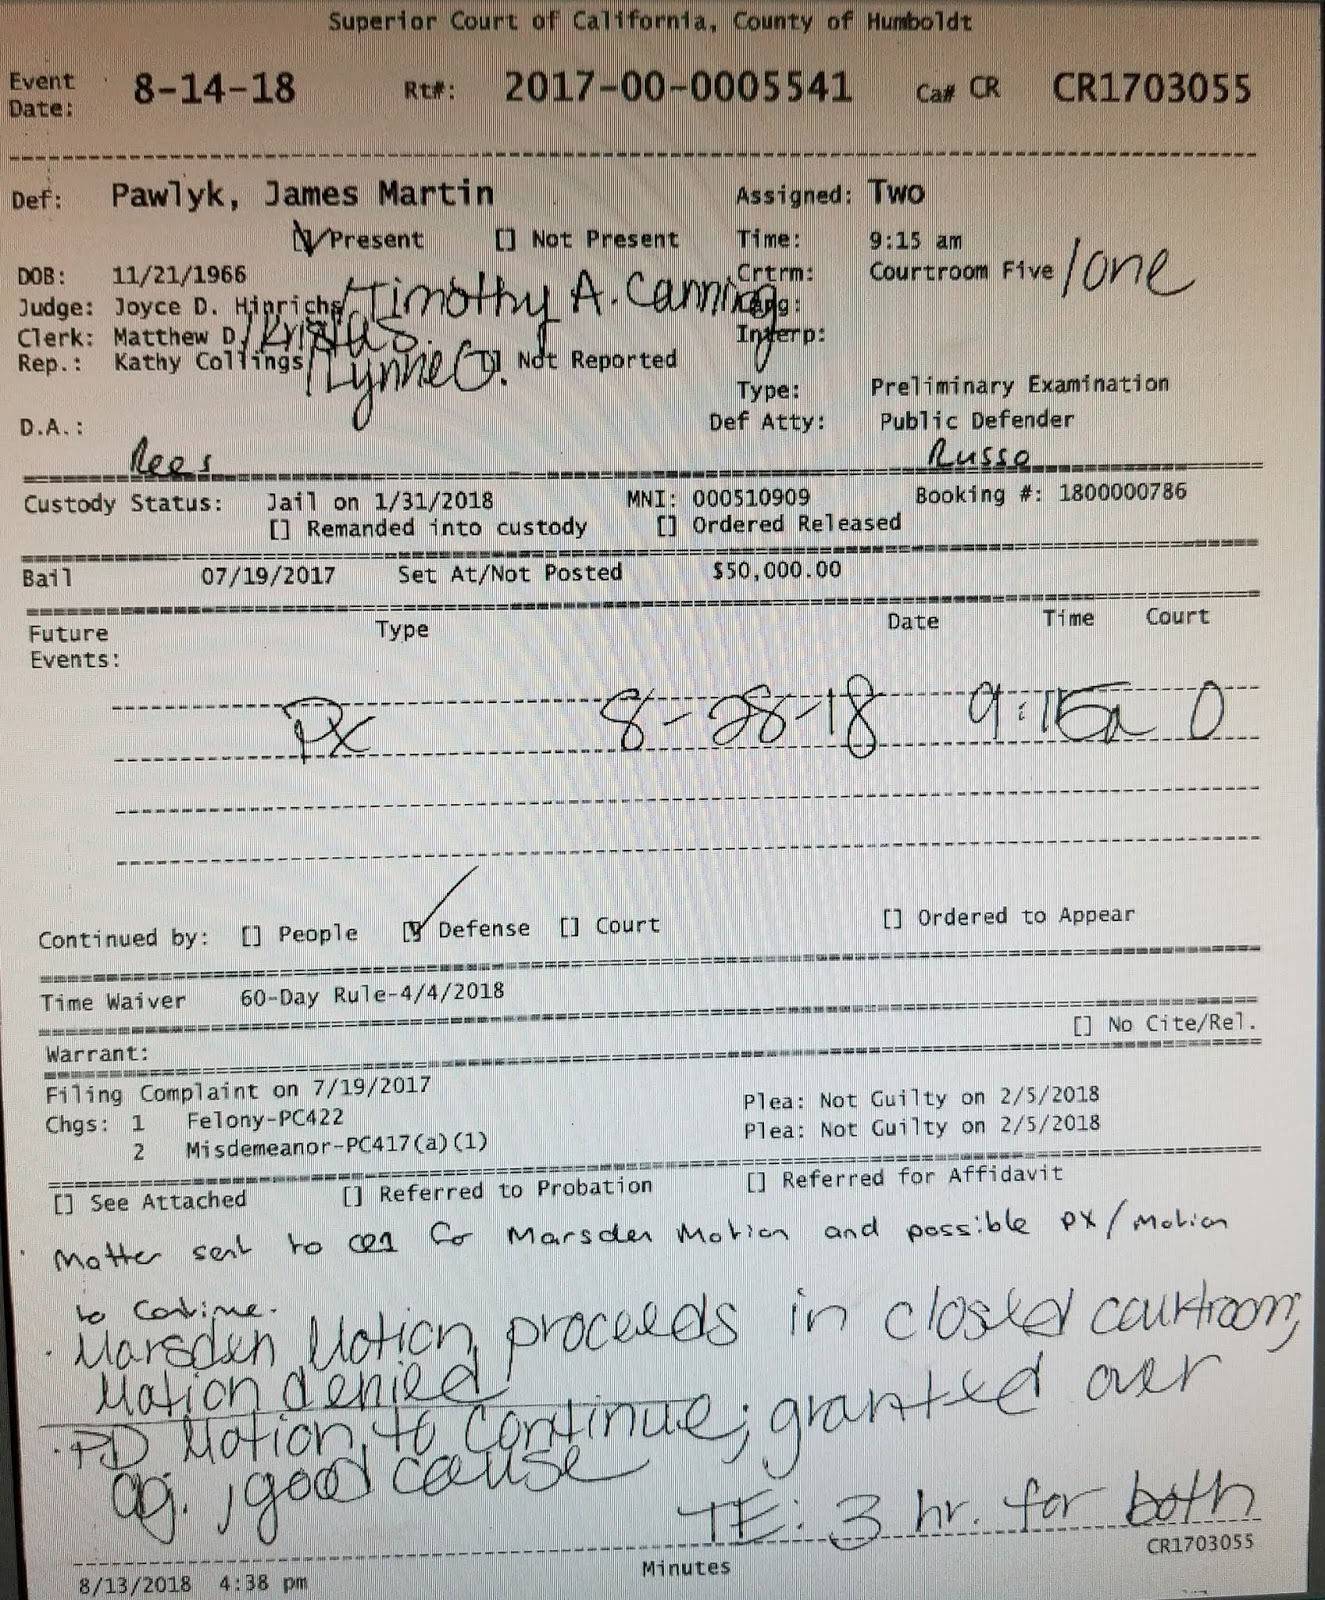 Superior Court of California, County of Humboldt
Event Date: 8-14-18 Rt#: 2017-00-0005541 Ca# CR CR1703055
Def: Pawlyk, James Martin Assigned: Two
[✓] Present [] Not Present Time: 9:15 am
DOB: 11/21/1966 Crtrm: Courtroom Five /one
Judge: Joyce D. Hinrichs/Timothy A. Canning
Clerk: Matthew D/Krista S. Interp:
Rep.: Kathy Collings/Lynne G. [] Not Reported
Type: Preliminary Examination
D.A.: Def Atty: Public Defender
Rees Russo
Custody Status: Jail on 1/31/2018 MNI: 000510909 Booking #: 1800000786
[] Remanded into custody [] Ordered Released
Bail 07/19/2017 Set At/Not Posted $50,000.00
Future Events: Type Date Time Court
Px 8-28-18 9:15a
Continued by: [] People [✓] Defense [] Court [] Ordered to Appear
Time Waiver 60-Day Rule-4/4/2018
[] No Cite/Rel.
Warrant:
Filing Complaint on 7/19/2017
Chgs: 1 Felony-PC422 Plea: Not Guilty on 2/5/2018
2 Misdemeanor-PC417(a)(1) Plea: Not Guilty on 2/5/2018
[] See Attached [] Referred to Probation [] Referred for Affidavit
· Matter sent to for Marsden Motion and possible px/motion
to continue.
· Marsden Motion proceeds in closed courtroom;
Motion denied
· PD Motion to Continue; granted over
obj., good cause
TE: 3 hr. for both
CR1703055
8/13/2018 4:38 pm Minutes